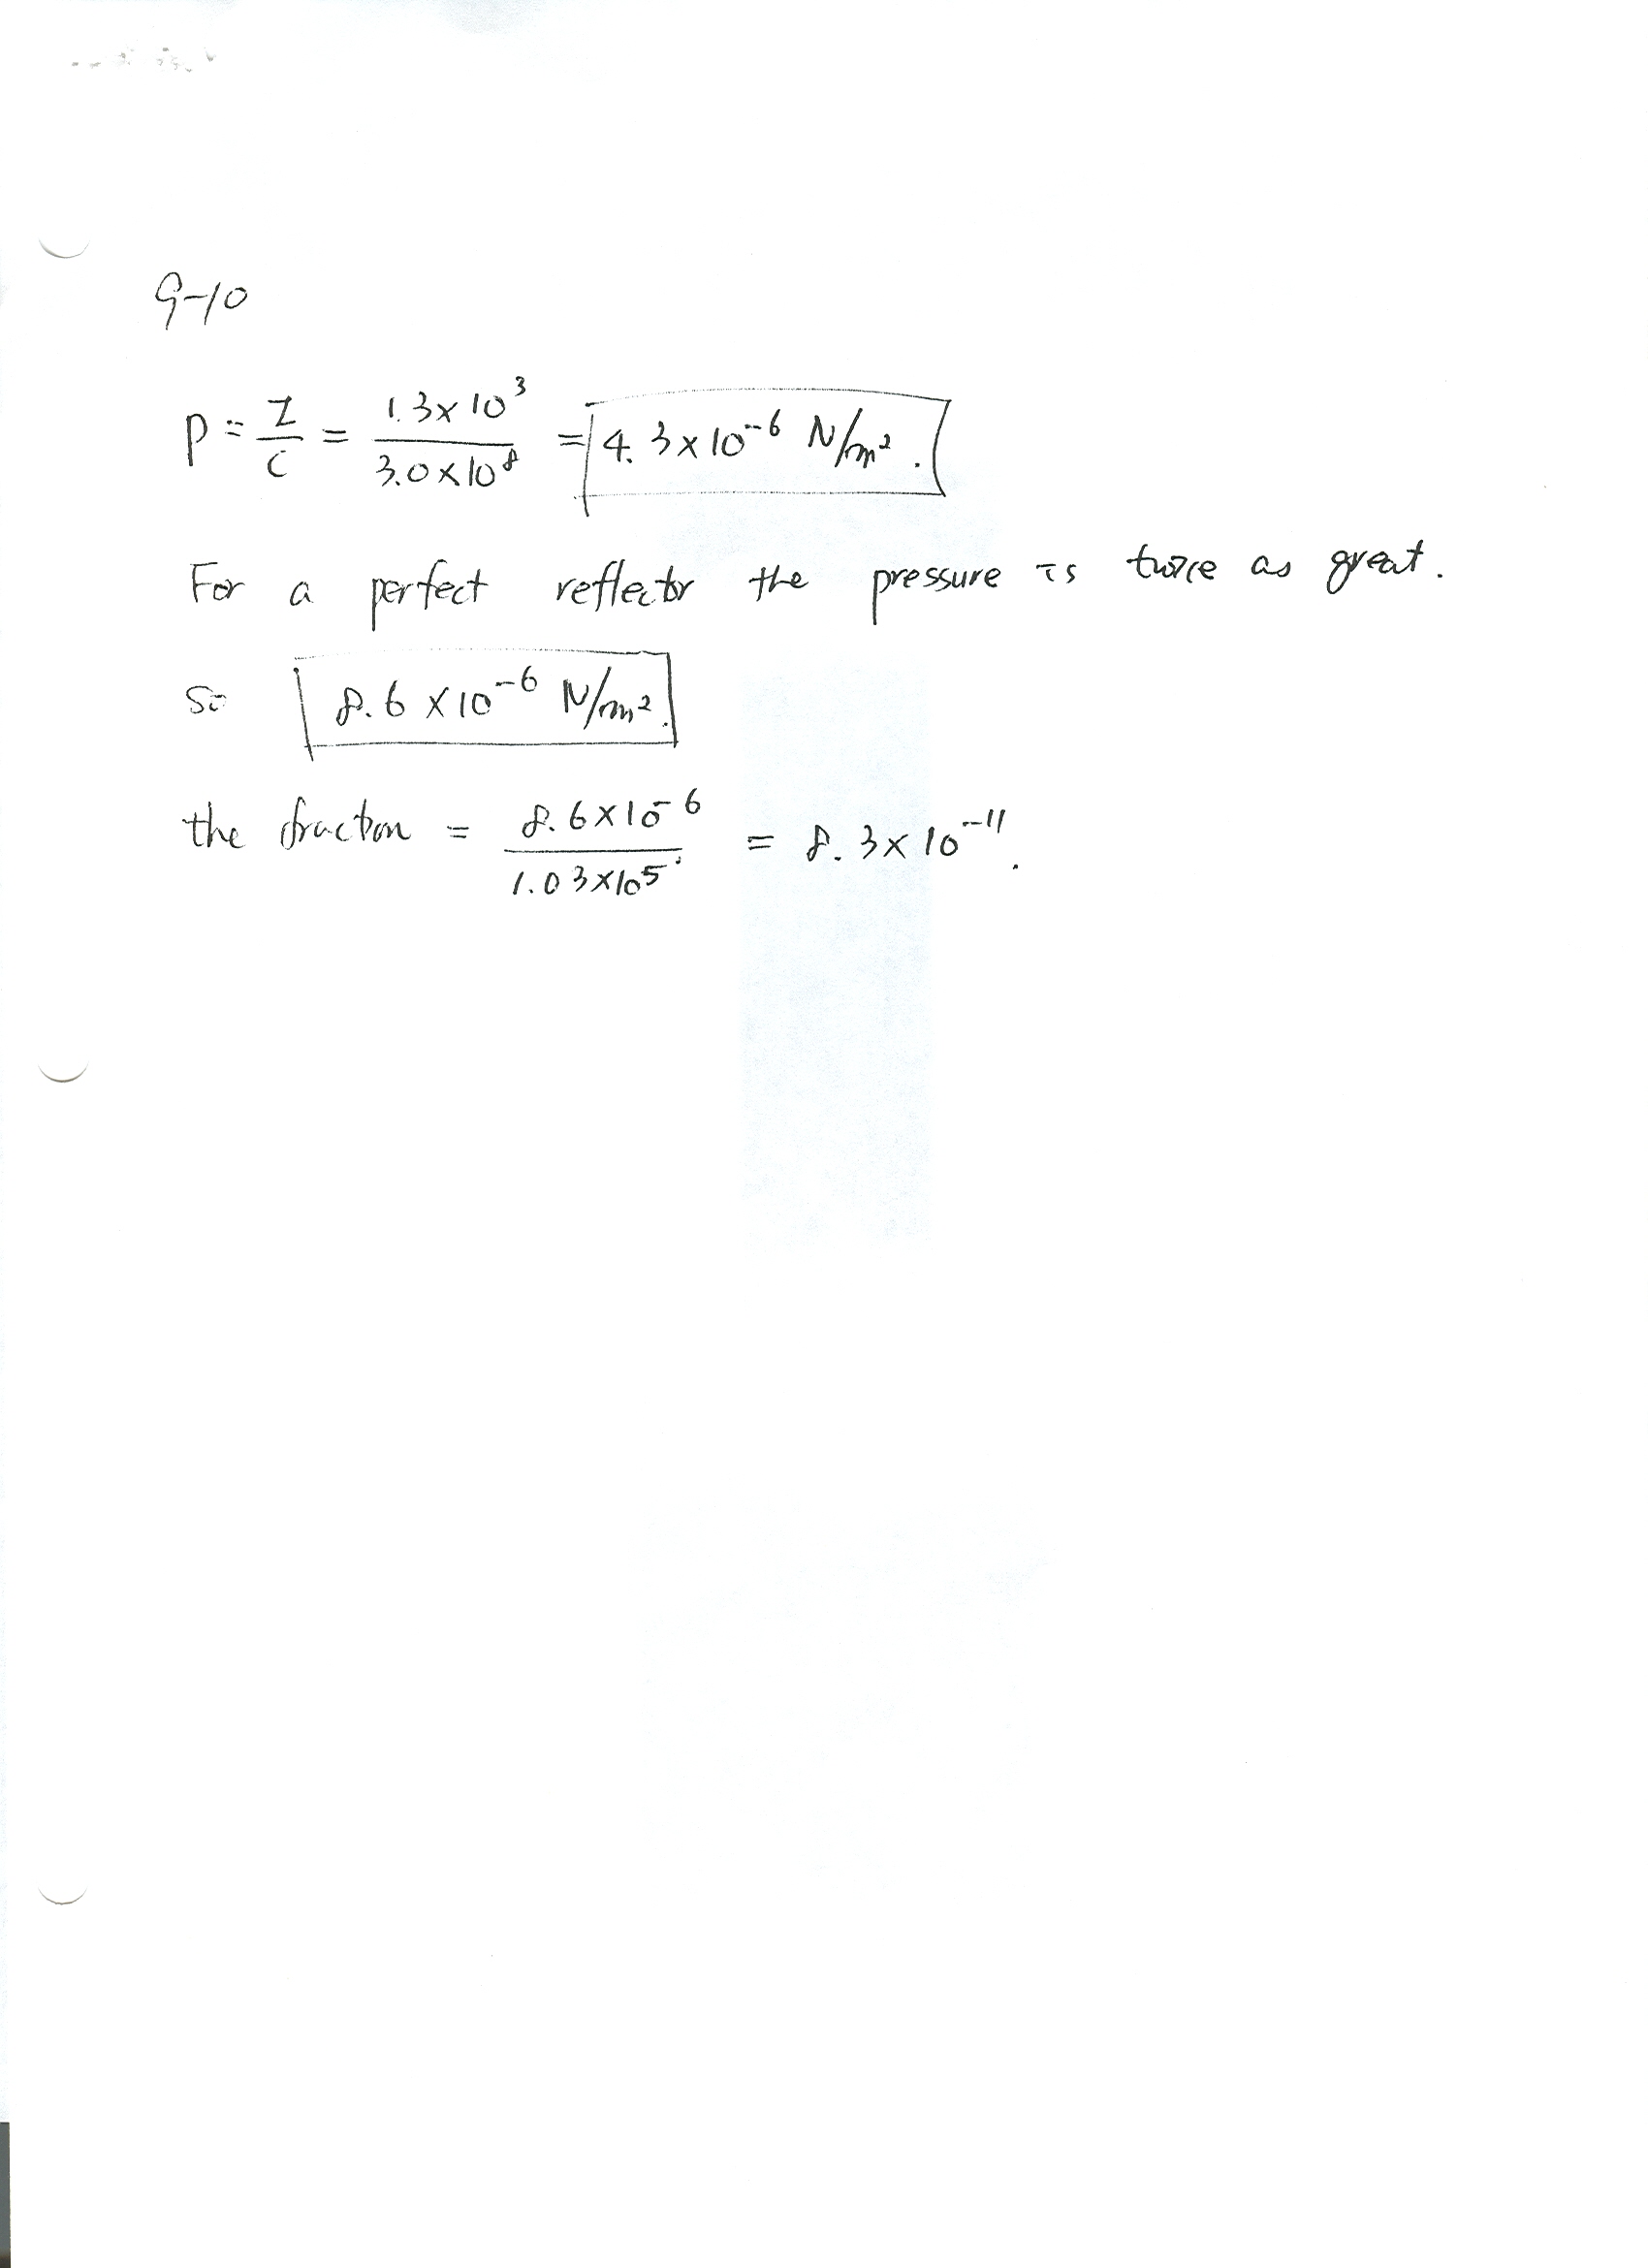 9-10
P = I/C = 1.3×10³ / 3.0×10⁸ = 4.3×10⁻⁶ N/m².
For a perfect reflector the pressure is twice as great.
So 8.6×10⁻⁶ N/m².
the fraction = 8.6×10⁻⁶ / 1.03×10⁵ = 8.3×10⁻¹¹.